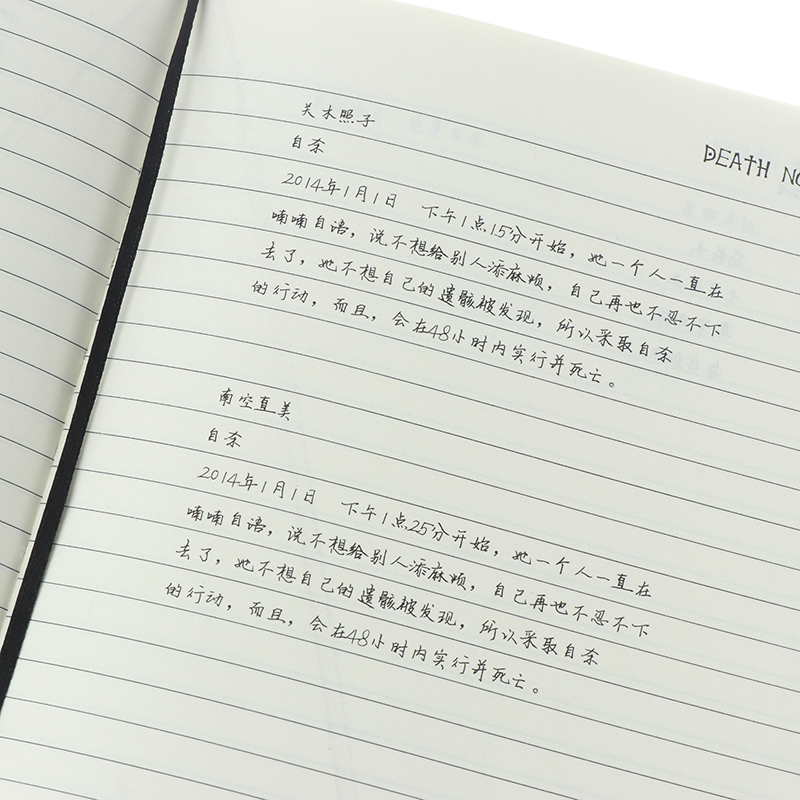 DEATH NO
关木照子
自杀
2014年1月1日 下午1点15分开始，她一个人一直在
喃喃自语，说不想给别人添麻烦，自己再也不忍不下
去了，她不想自己的遗骸被发现，所以采取自杀
的行动，而且，会在48小时内实行并死亡。
南空直美
自杀
2014年1月1日 下午1点25分开始，她一个人一直在
喃喃自语，说不想给别人添麻烦，自己再也不忍不下
去了，她不想自己的遗骸被发现，所以采取自杀
的行动，而且，会在48小时内实行并死亡。